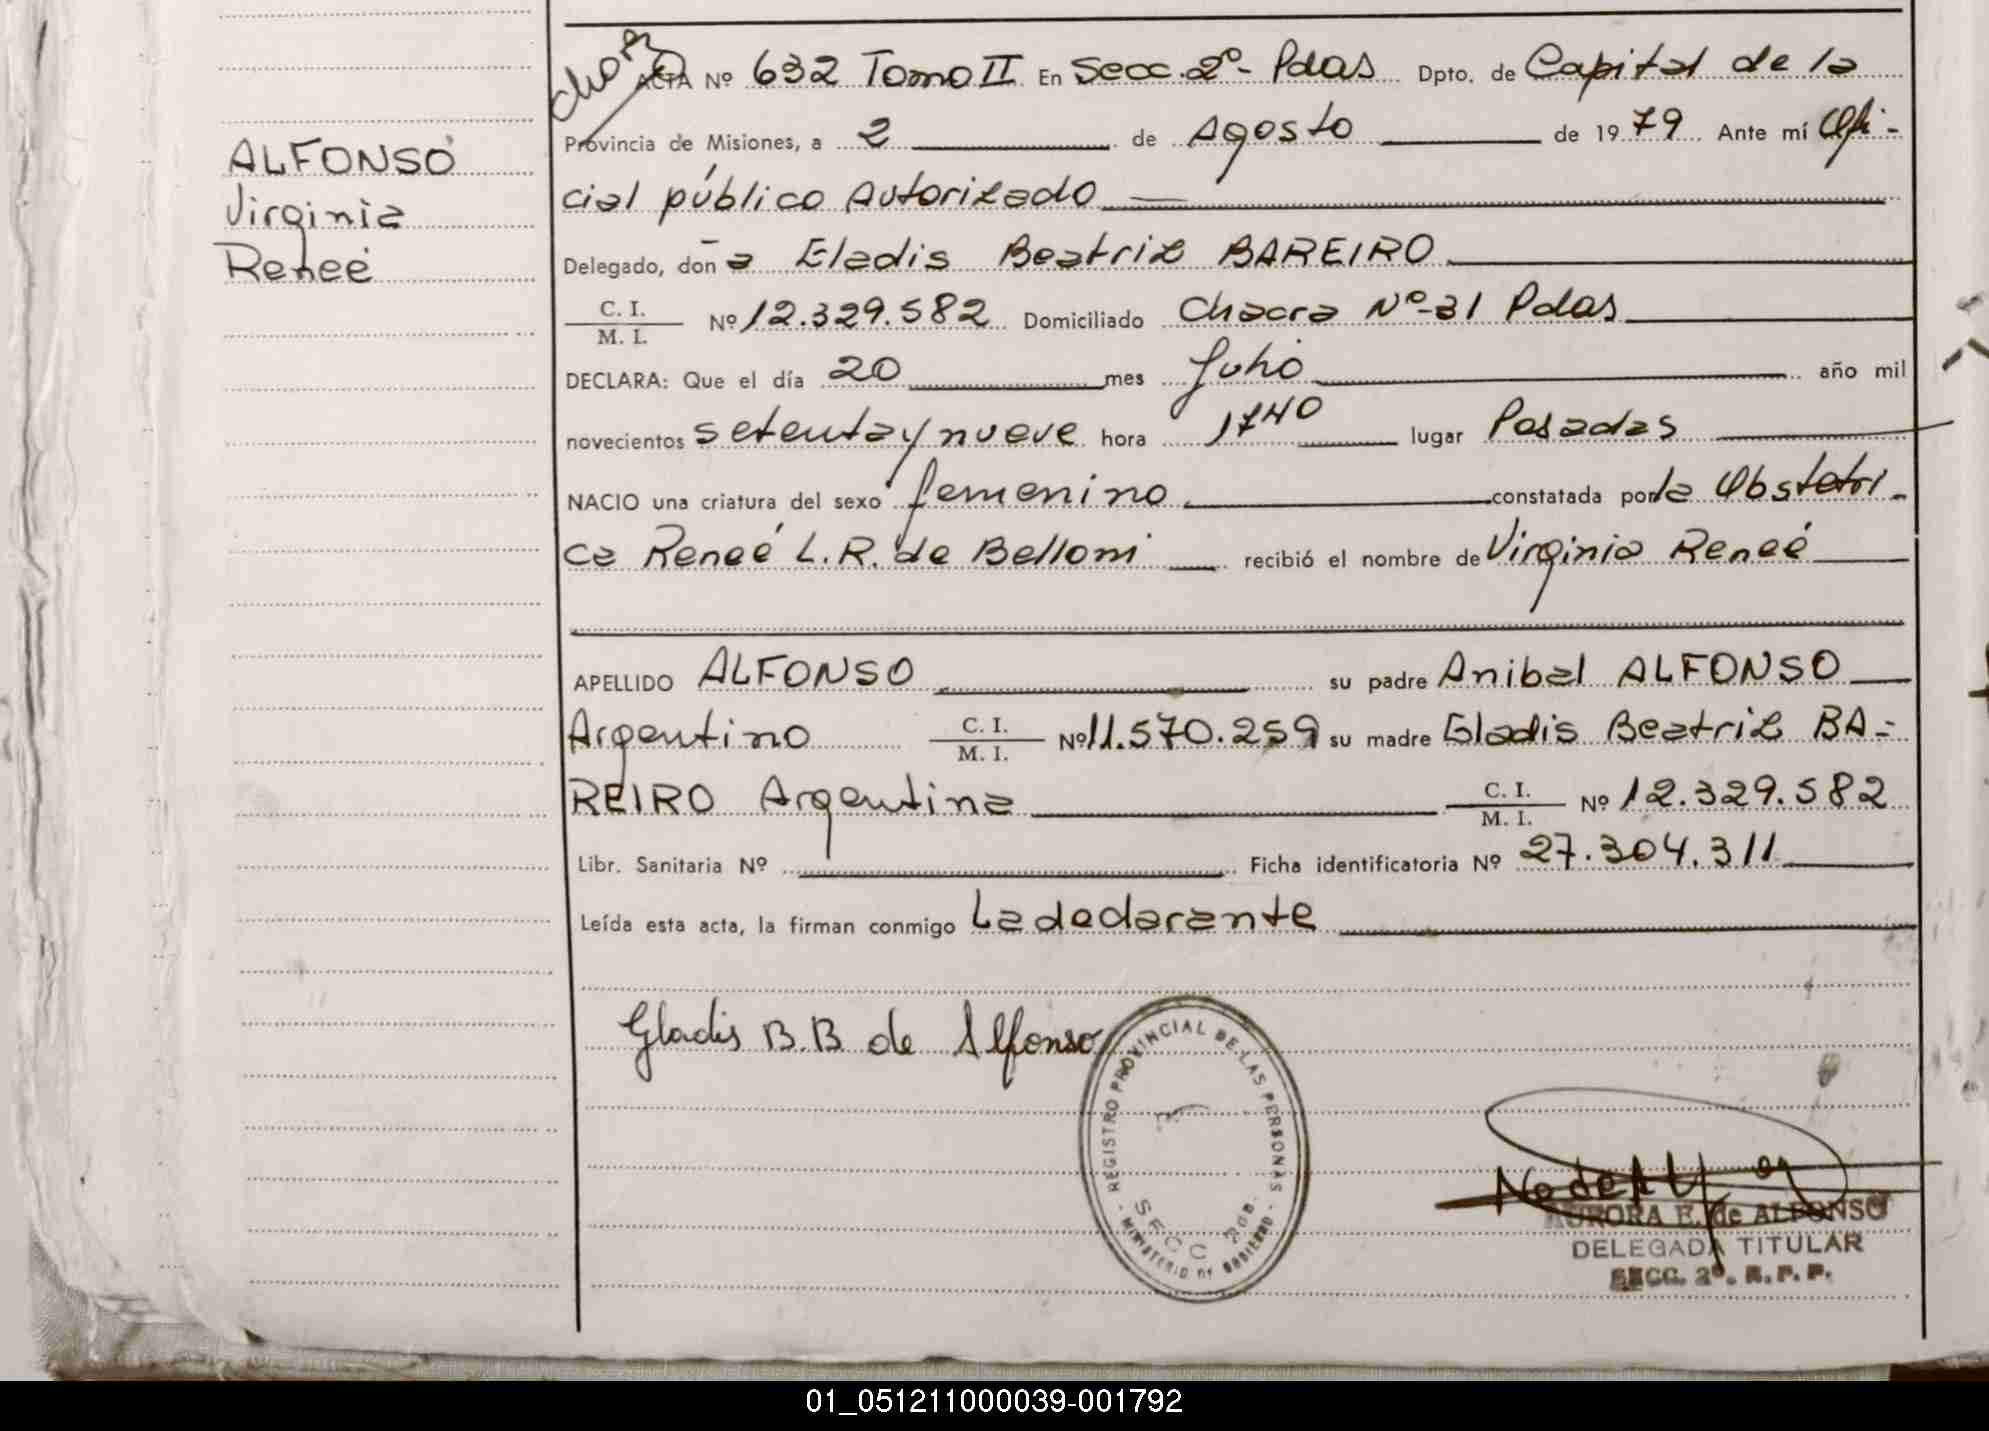 ALFONSO
Virginia
Reneé
ACTA Nº 632 Tomo II En Secc. 2º- Pdas Dpto. de Capital de la
Provincia de Misiones, a 2 de Agosto de 1979 Ante mí Ofi-
cial público Autorizado
Delegado, don a Gladis Beatriz BAREIRO
C. I.
M. I. Nº 12.329.582 Domiciliado Chacra Nº-31 Pdas
DECLARA: Que el día 20 mes Julio año mil
novecientos setenta y nueve hora 1740 lugar Posadas
NACIO una criatura del sexo femenino constatada por la Obstetri-
ca Reneé L.R. de Belloni recibió el nombre de Virginia Reneé
APELLIDO ALFONSO su padre Anibal ALFONSO
Argentino C. I. M. I. Nº 11.570.259 su madre Gladis Beatriz BA-
REIRO Argentina C. I. M. I. Nº 12.329.582
Libr. Sanitaria Nº Ficha identificatoria Nº 27.304.311
Leída esta acta, la firman conmigo La declarante
Gladis B.B de Alfonso
REGISTRO PROVINCIAL DE LAS PERSONAS
SECC 2da.
AURORA E. de ALFONSO
DELEGADA TITULAR
SECC. 2º. R. P. P.
01_051211000039-001792